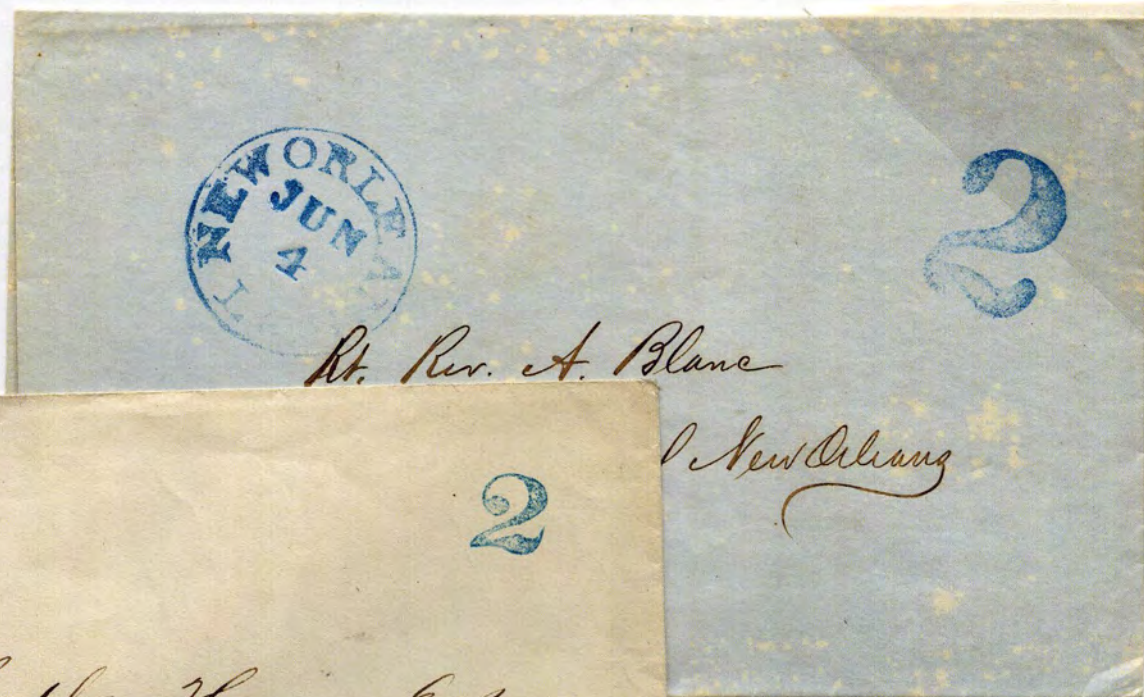 NEW ORLEA
JUN
4
2
Rt. Rev. A. Blanc
New Orleans
2